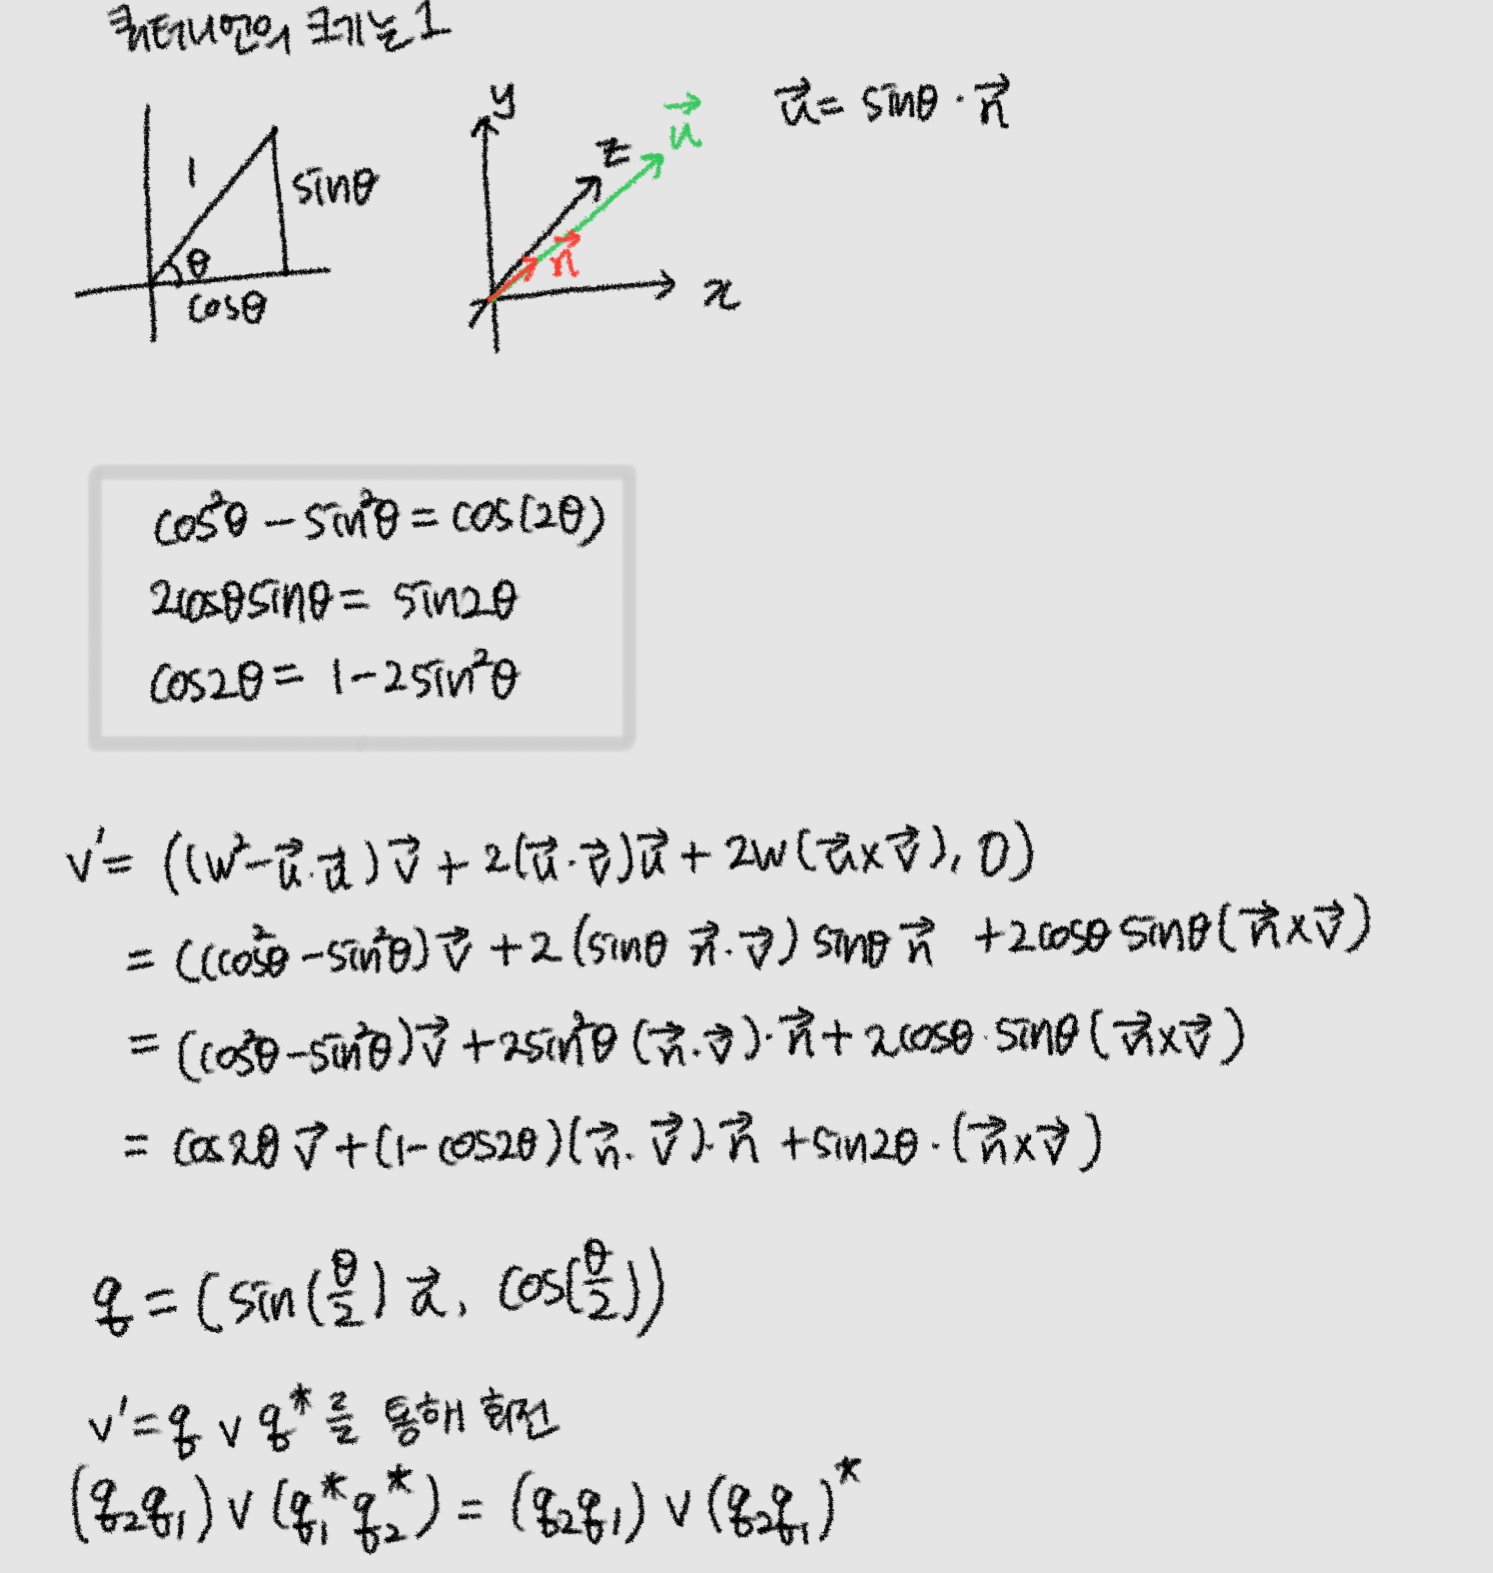 쿼터니언의 크기는 1
1
sinθ
θ
cosθ
y
z
x
u⃗
n⃗
u⃗ = sinθ · n⃗
cos²θ - sin²θ = cos(2θ)
2cosθsinθ = sin2θ
cos2θ = 1-2sin²θ
v' = ((w²-u⃗·u⃗)v⃗ + 2(u⃗·v⃗)u⃗ + 2w(u⃗×v⃗), 0)
= ((cos²θ-sin²θ)v⃗ + 2(sinθ n⃗·v⃗) sinθ n⃗ + 2cosθ sinθ(n⃗×v⃗)
= (cos²θ-sin²θ)v⃗ + 2sin²θ (n⃗·v⃗)·n⃗ + 2cosθ·sinθ(n⃗×v⃗)
= cos2θ v⃗ + (1-cos2θ)(n⃗·v⃗)·n⃗ + sin2θ·(n⃗×v⃗)
q = (sin(θ/2) u⃗, cos(θ/2))
v' = q v q* 를 통해 회전
(q₂q₁) v (q₁*q₂*) = (q₂q₁) v (q₂q₁)*